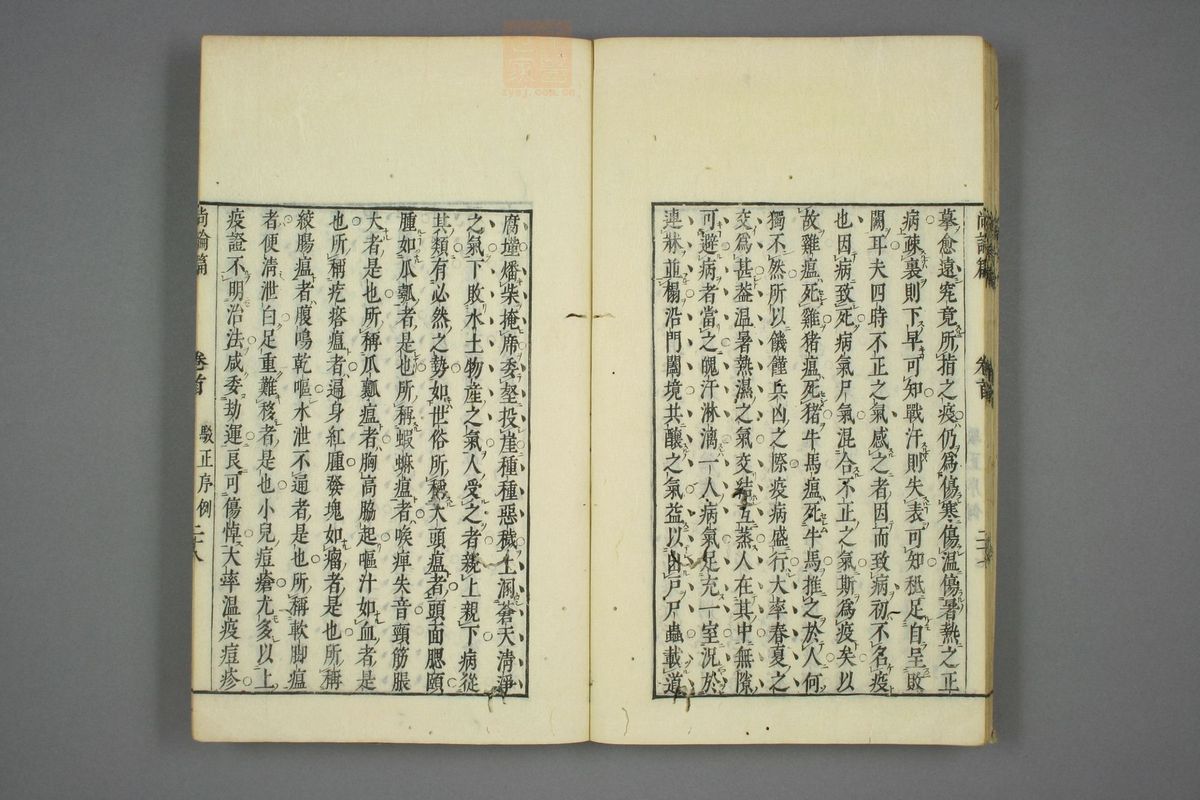 尚論篇　卷首
摹愈遠究竟所指之疫仍爲傷寒傷温傷暑熱之正
病疎裏則下早可知戰汗則失表可知秪足自呈敗
闕耳夫四時不正之氣感之者因而致病初不名疫
也因病致死病氣尸氣混合不正之氣斯爲疫矣以
故雞瘟死雞猪瘟死猪牛馬瘟死牛馬推之於人何
獨不然所以饑饉兵凶之際疫病盛行大率春夏之
交爲甚葢温暑熱濕之氣交結互蒸人在其中無隙
可避病者當之魄汗淋漓一人病氣足充一室況於
連牀並榻沿門闔境共釀之氣益以出戶尸蟲載道
腐墐燔柴掩席委壑投崖種種惡穢上溷蒼天清淨
之氣下敗水土物產之氣人受之者親上親下病從
其類有必然之勢如世俗所稱大頭瘟者頭面腮頤
腫如瓜瓠者是也所稱蝦蟆瘟者喉痺失音頸筋脹
大者是也所稱瓜瓤瘟者胸高脇起嘔汁如血者是
也所稱疙瘩瘟者遍身紅腫發塊如瘤者是也所稱
絞腸瘟者腹鳴乾嘔水泄不通者是也所稱軟脚瘟
者便清泄白足重難移者是也小兒痘瘡尤多以上
疫證不明治法咸委劫運良可傷悼大率温疫痘疹
尚論篇　卷首　駁正序例　二十八
zysj.com.cn